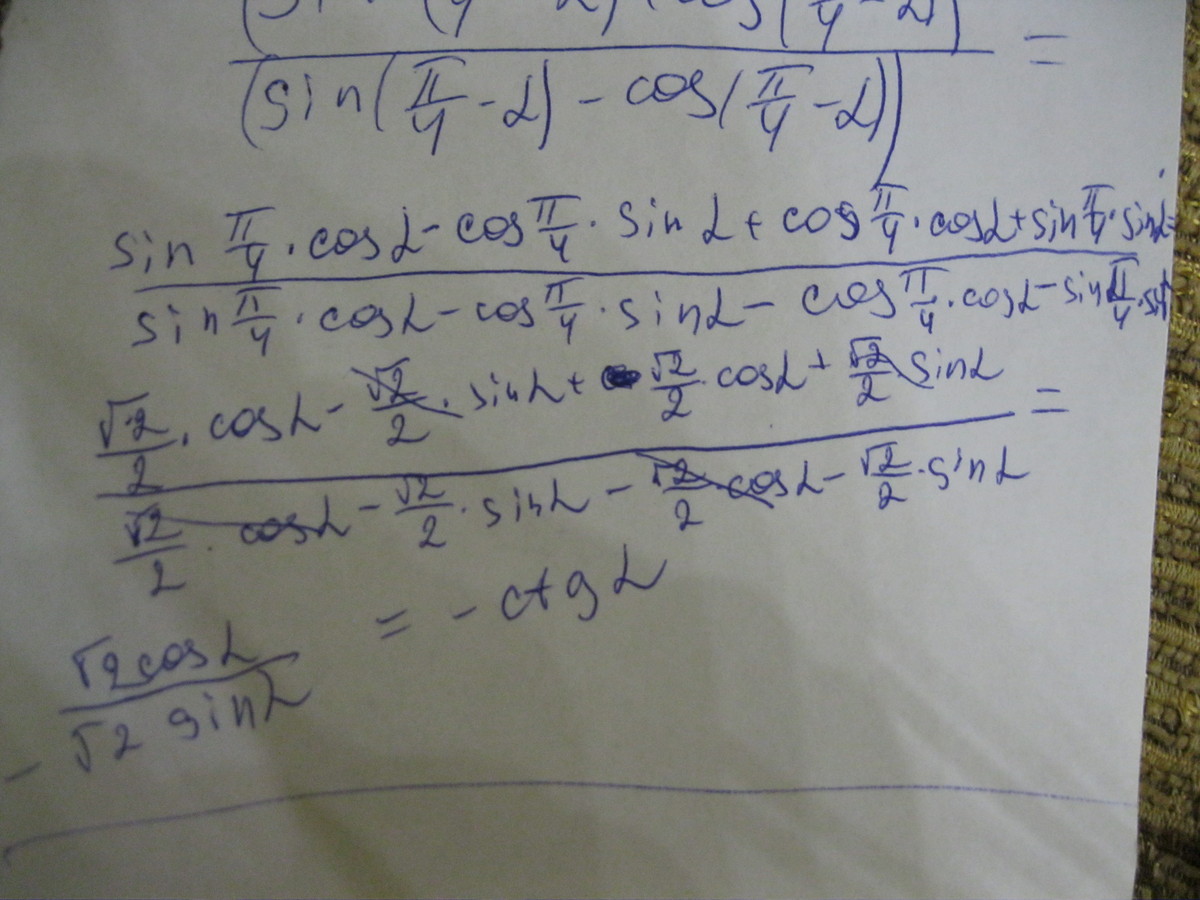 (sin(π/4 - α) + cos(π/4 - α)) =
(sin(π/4 - α) - cos(π/4 - α))
sin π/4 · cosα - cos π/4 · sin α + cos π/4 · cosα + sin π/4 · sinα =
sin π/4 · cosα - cos π/4 · sinα - cos π/4 · cosα - sin π/4 · sin
√2/2 · cosα - √2/2 · sinα + √2/2 · cosα + √2/2 sinα =
√2/2 · cosα - √2/2 · sinα - √2/2 cosα - √2/2 · sinα
= - ctgα
√2 cosα
- √2 sinα